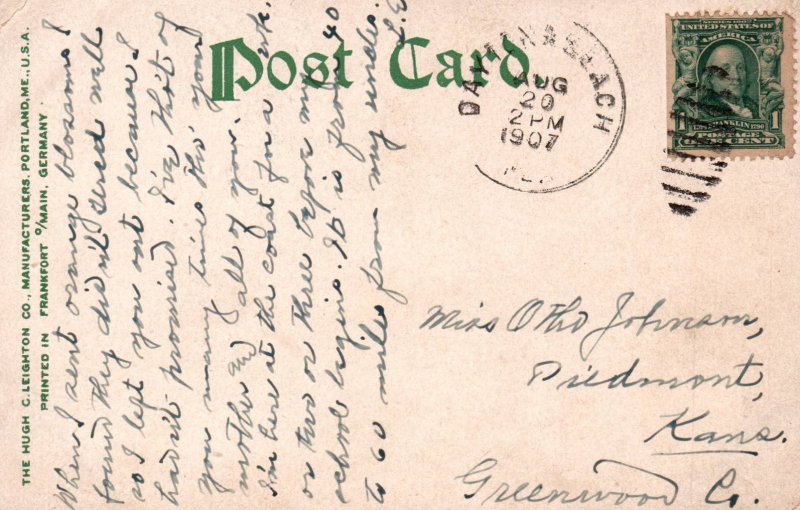 THE HUGH C. LEIGHTON CO., MANUFACTURERS, PORTLAND, ME., U.S.A.
PRINTED IN FRANKFORT o/MAIN, GERMANY.
Post Card
AUG
20
2 PM
1907
SERIES 1902
UNITED STATES OF
AMERICA
FRANKLIN 1790
1 POSTAGE
ONE CENT
When I sent orange blossoms I
found they didn't send well
so I left you out because I
hadn't promised. I've tho't of
you many times tho' your
mother and all of you.
I'm here at the coast for a wk.
or two or three before my
school begins. It is from 40
to 60 miles from my uncles.
L.E.
Miss Otho Johnson,
Piedmont,
Kans.
Greenwood Co.